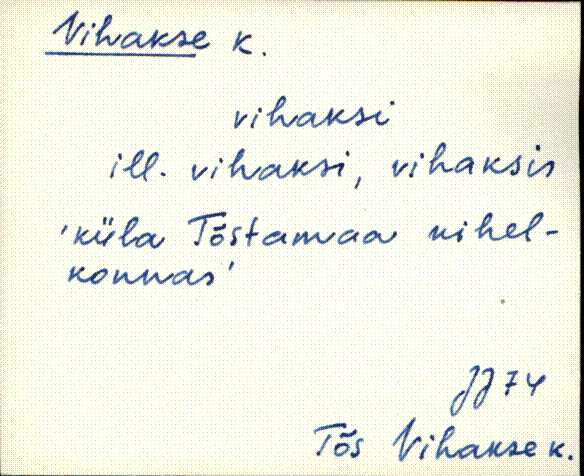 Vihakse k.
vihaksi
ill. vihaksi, vihaksis
'küla Tõstamaa kihel-
konnas'
JJ 74
Tõs Vihakse k.